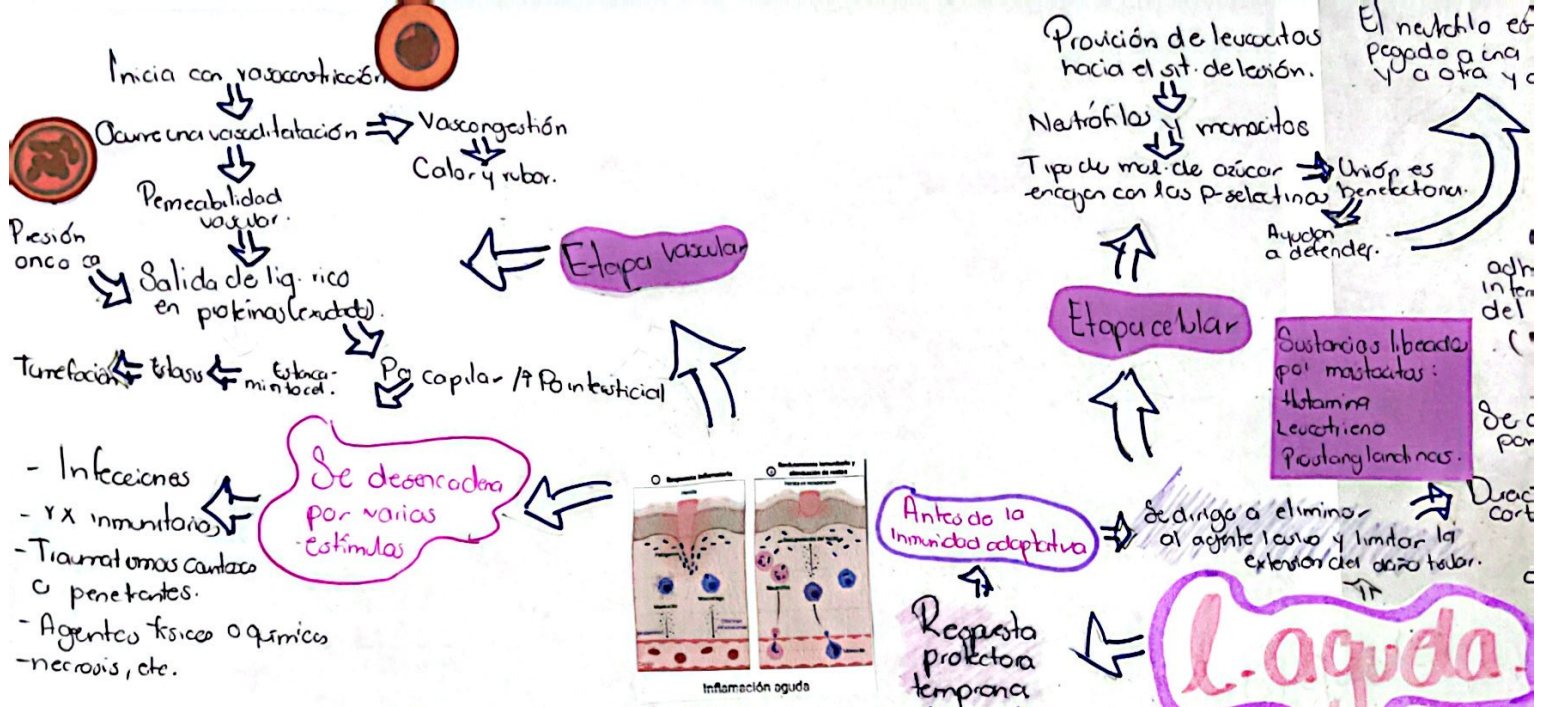 Inicia con vasoconstricción
Ocurre una vasodilatación
Vascongestión
Calor y rubor.
Pemeabilidad
vascular.
Presión
onco ca
Salida de liq. rico
en proteínas (exudado).
Tumefación
Estasis
Estanca-
miento cel.
Po capilar / ↑ Po intersticial
Etapa vascular
- Infecciones
- rx inmunitarias
- Traumatismos
o penetrantes.
- Agentes físicos o químicos
- necrosis, etc.
Se desencadena
por varios
estímulos
Inflamación aguda
Provición de leucocitos
hacia el sit. de lesión.
Neutrófilos y monocitos
Tipo de mol. de azúcar
encajan con las P-selectinas
Unión es
benefectora.
Ayudan
a defender.
El neutrófilo es
pegado a una
y a otra y
Etapa celular
Sustancias liberada
por mastocitos:
Histamina
Leucotrieno
Prostanglandinas.
adh
del
Antes de la
inmunidad adaptativa
Se dirige a eliminar
al agente lesivo y limitar la
extensión del daño tisular.
Durac
cort
Respuesta
protectora
temprana
I. aguda.